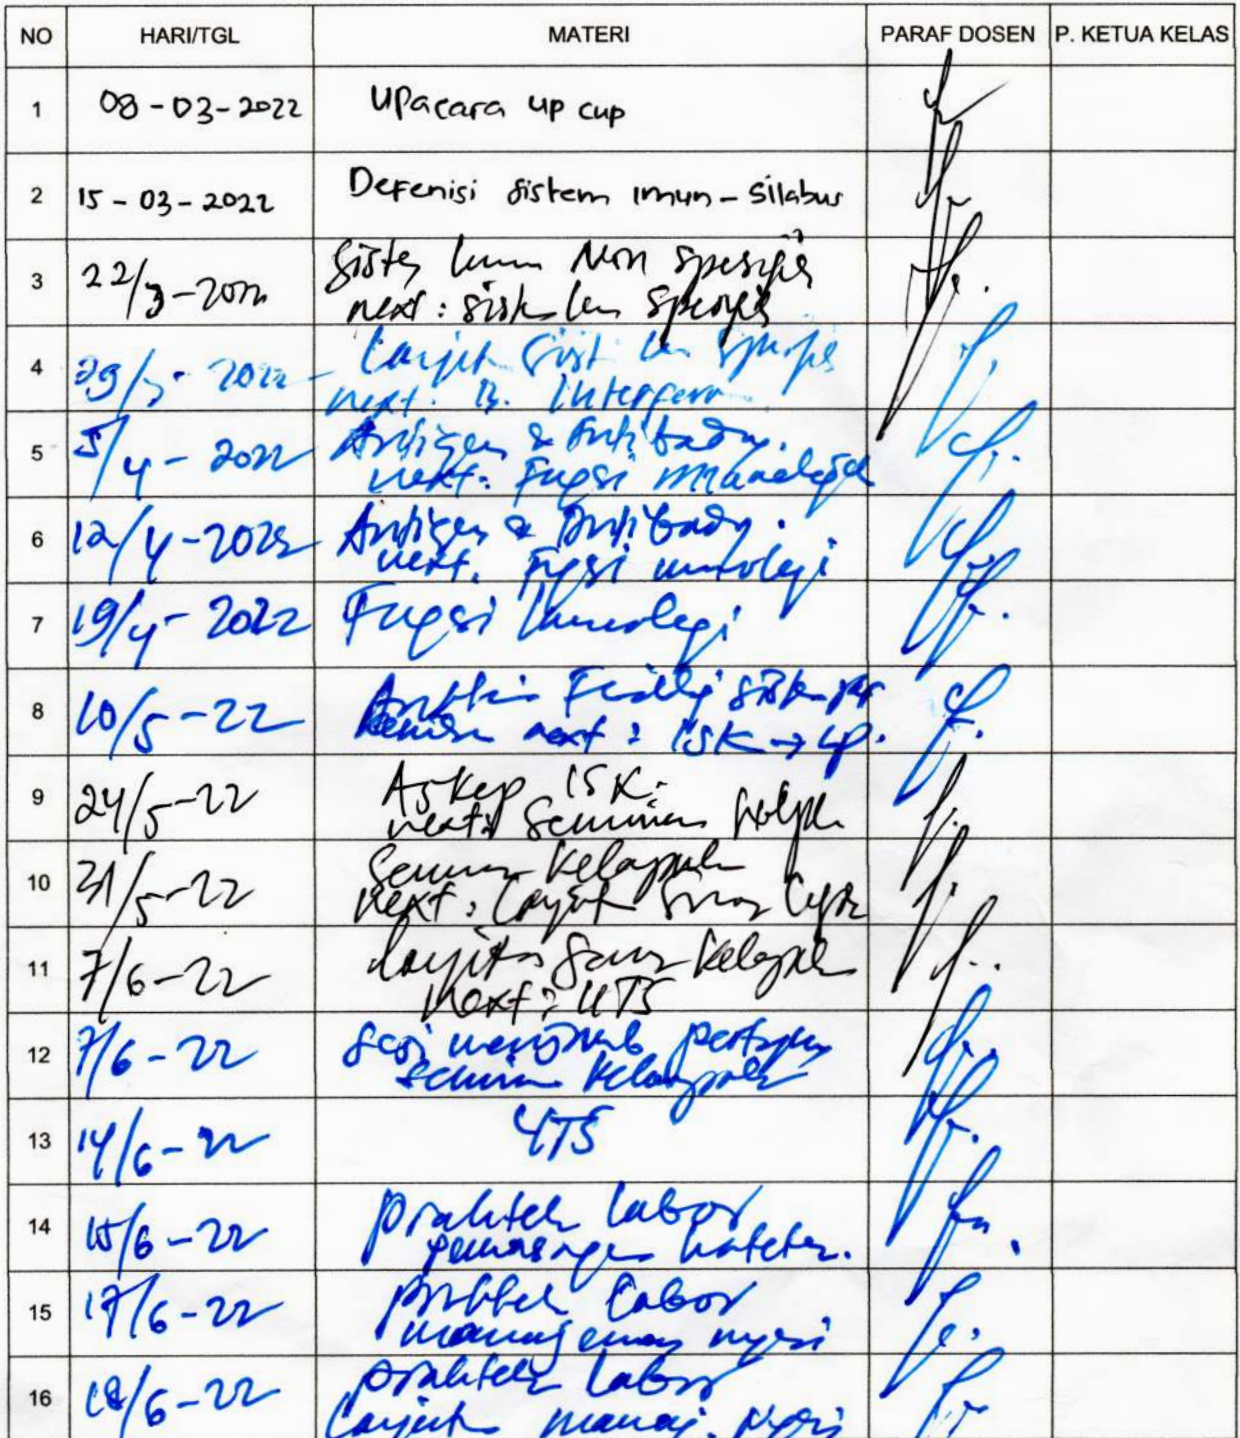 NO HARI/TGL MATERI PARAF DOSEN P. KETUA KELAS
1 08-03-2022 Upacara up cup
2 15-03-2022 Defenisi sistem imun - silabus
3 22/3-2022 Sistem Imun Non Spesifik
next: sistem imun spesifik
4 29/3-2022 Lanjut Sist imun Spesifik
next: Interferon
5 5/4-2022 Antigen & Antibody.
next: Fugsi
6 12/4-2022 Antigen & Antibody.
next. Fugsi imunologi
7 19/4-2022 Fugsi Imunologi
8 10/5-22
next: ISK → LP.
9 24/5-22 Askep ISK.
next: Seminar
10 31/5-22 Seminar Kelompok
next: Lanjut
11 7/6-22 Kelompok
next: UTS
12 7/6-22 sesi menjawab
seminar kelompok
13 14/6-22 UTS
14 15/6-22 praktek labor
pemasangan kateter.
15 17/6-22 praktek labor
nyeri
16 18/6-22 praktek labor
Lanjut manaj. Nyeri